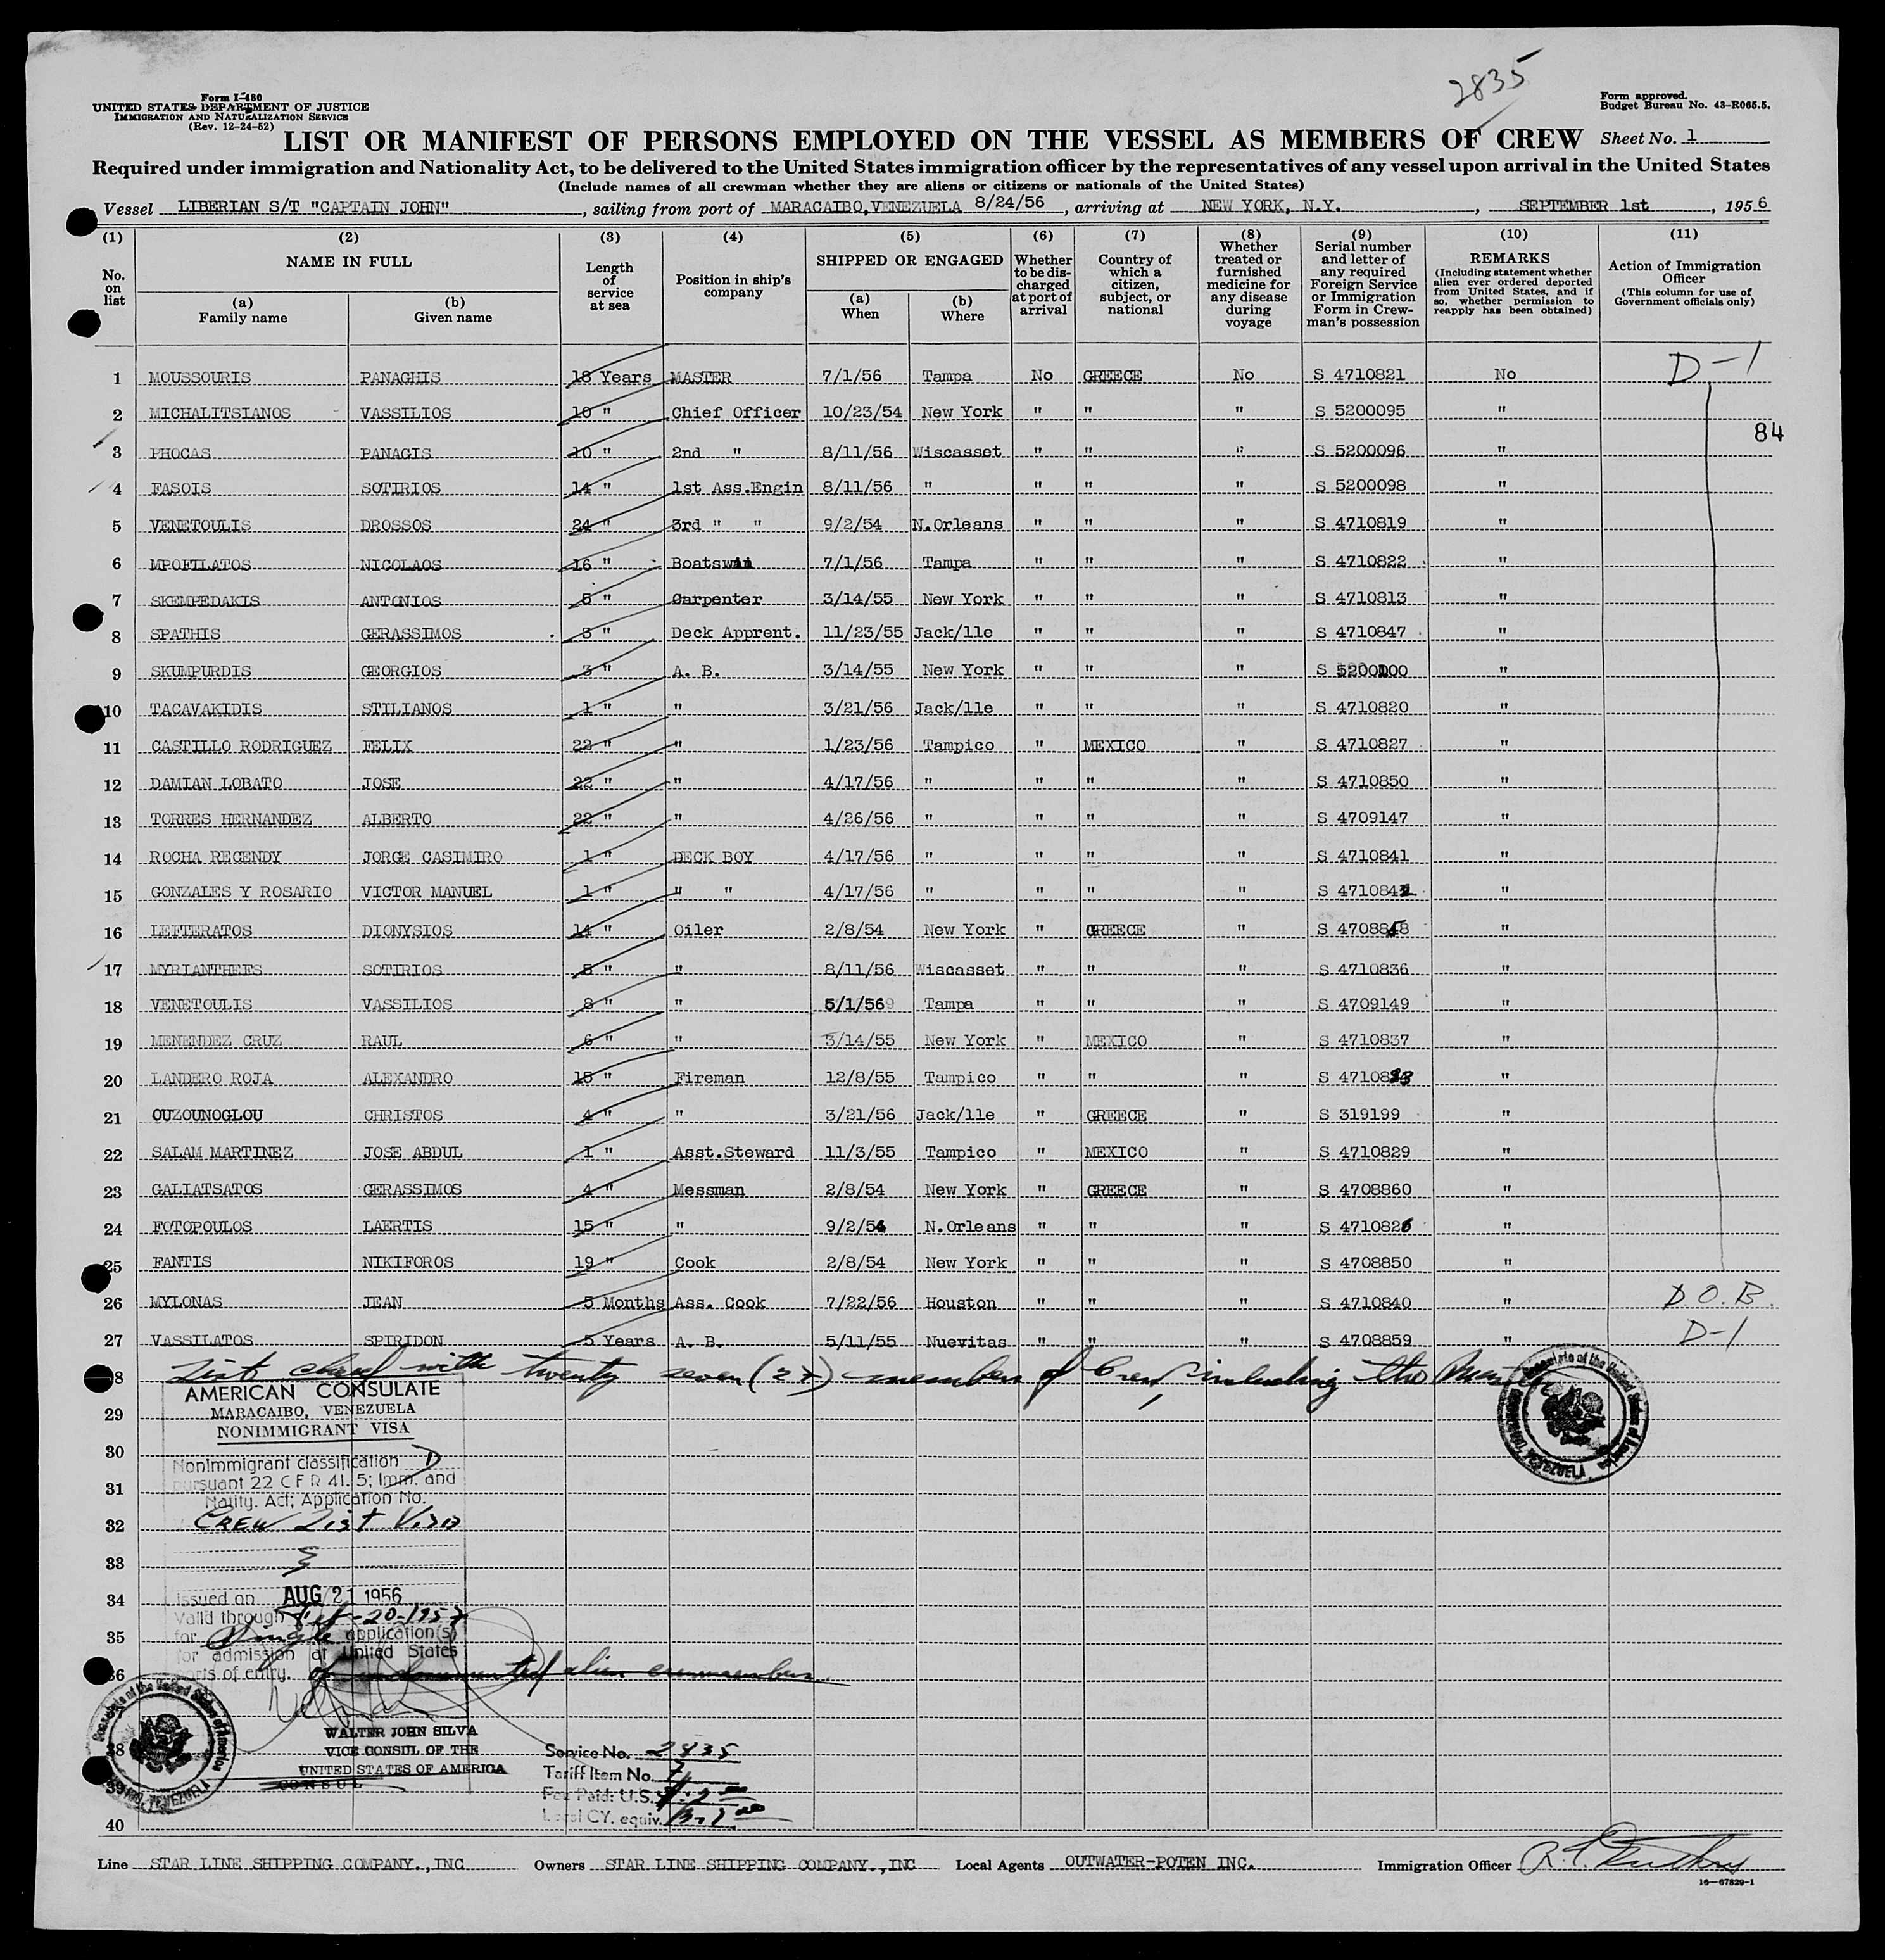 2835
Form I-480
UNITED STATES DEPARTMENT OF JUSTICE
IMMIGRATION AND NATURALIZATION SERVICE
(Rev. 12-24-52)
Form approved.
Budget Bureau No. 43-R065.5.
LIST OR MANIFEST OF PERSONS EMPLOYED ON THE VESSEL AS MEMBERS OF CREW Sheet No. 1
Required under immigration and Nationality Act, to be delivered to the United States immigration officer by the representatives of any vessel upon arrival in the United States
(Include names of all crewman whether they are aliens or citizens or nationals of the United States)
Vessel LIBERIAN S/T "CAPTAIN JOHN", sailing from port of MARACAIBO, VENEZUELA 8/24/56, arriving at NEW YORK, N.Y., SEPTEMBER 1st, 1956
(1) (2) (3) (4) (5) (6) (7) (8) (9) (10) (11)
No. on list
NAME IN FULL
(a) Family name
(b) Given name
Length of service at sea
Position in ship's company
SHIPPED OR ENGAGED
(a) When
(b) Where
Whether to be discharged at port of arrival
Country of which a citizen, subject, or national
Whether treated or furnished medicine for any disease during voyage
Serial number and letter of any required Foreign Service or Immigration Form in Crewman's possession
REMARKS
(Including statement whether alien ever ordered deported from United States, and if so, whether permission to reapply has been obtained)
Action of Immigration Officer
(This column for use of Government officials only)
1 MOUSSOURIS PANAGHIS 18 Years MASTER 7/1/56 Tampa No GREECE No S 4710821 No D-1
2 MICHALITSIANOS VASSILIOS 10 " Chief Officer 10/23/54 New York " " " S 5200095 "
84
3 PHOCAS PANAGIS 10 " 2nd " 8/11/56 Wiscasset " " " S 5200096 "
4 FASOIS SOTIRIOS 14 " 1st Ass.Engin 8/11/56 " " " " S 5200098 "
5 VENETOULIS DROSSOS 24 " 3rd " " 9/2/54 N.Orleans " " " S 4710819 "
6 MPOFILATOS NICOLAOS 16 " Boatswain 7/1/56 Tampa " " " S 4710822 "
7 SKEMPEDAKIS ANTONIOS 5 " Carpenter 3/14/55 New York " " " S 4710813 "
8 SPATHIS GERASSIMOS 3 " Deck Apprent. 11/23/55 Jack/lle " " " S 4710847 "
9 SKUMPURDIS GEORGIOS 3 " A. B. 3/14/55 New York " " " S 5200100 "
10 TACAVAKIDIS STILIANOS 1 " " 3/21/56 Jack/lle " " " S 4710820 "
11 CASTILLO RODRIGUEZ FELIX 22 " " 1/23/56 Tampico " MEXICO " S 4710827 "
12 DAMIAN LOBATO JOSE 22 " " 4/17/56 " " " " S 4710850 "
13 TORRES HERNANDEZ ALBERTO 22 " " 4/26/56 " " " " S 4709147 "
14 ROCHA RECENDY JORGE CASIMIRO 1 " DECK BOY 4/17/56 " " " " S 4710841 "
15 GONZALES Y ROSARIO VICTOR MANUEL 1 " " " 4/17/56 " " " " S 4710842 "
16 LEFTERATOS DIONYSIOS 14 " Oiler 2/8/54 New York " GREECE " S 4708858 "
17 MYRIANTHEFS SOTIRIOS 5 " " 8/11/56 Wiscasset " " " S 4710836 "
18 VENETOULIS VASSILIOS 8 " " 5/1/56 Tampa " " " S 4709149 "
19 MENENDEZ CRUZ RAUL 6 " " 3/14/55 New York " MEXICO " S 4710837 "
20 LANDERO ROJA ALEXANDRO 15 " Fireman 12/8/55 Tampico " " " S 4710823 "
21 OUZOUNOGLOU CHRISTOS 4 " " 3/21/56 Jack/lle " GREECE " S 319199 "
22 SALAM MARTINEZ JOSE ABDUL 1 " Asst.Steward 11/3/55 Tampico " MEXICO " S 4710829 "
23 GALIATSATOS GERASSIMOS 4 " Messman 2/8/54 New York " GREECE " S 4708860 "
24 FOTOPOULOS LAERTIS 15 " " 9/2/54 N.Orleans " " " S 4710826 "
25 FANTIS NIKIFOROS 19 " Cook 2/8/54 New York " " " S 4708850 "
26 MYLONAS JEAN 5 Months Ass. Cook 7/22/56 Houston " " " S 4710840 " D.O.B.
27 VASSILATOS SPIRIDON 5 Years A. B. 5/11/55 Nuevitas " " " S 4708859 " D-1
List closed with twenty seven (27) members of Crew, including the Master
AMERICAN CONSULATE
MARACAIBO, VENEZUELA
NONIMMIGRANT VISA
29
30
Nonimmigrant classification D
pursuant 22 CFR 41.5; Imm. and
31
Natity. Act; Application No.
32 CREW List Visa
33
34 Issued on AUG 21 1956
Valid through Feb-20-1957
35 for Single application(s)
for admission at United States
ports of entry. of undocumented alien crewmembers
WALTER JOHN SILVA
VICE CONSUL OF THE
UNITED STATES OF AMERICA
CONSUL
Service No. 2835
Tariff Item No. 7
Fee Paid: U.S.
Local CY. equiv.
40
Line STAR LINE SHIPPING COMPANY.,INC Owners STAR LINE SHIPPING COMPANY.,INC Local Agents OUTWATER-POTEN INC. Immigration Officer
16-67829-1